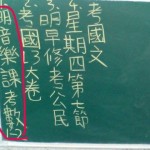 考國文
4.星期四第七節
3.明早修考公民
2.考國3大卷
明音樂課考歌